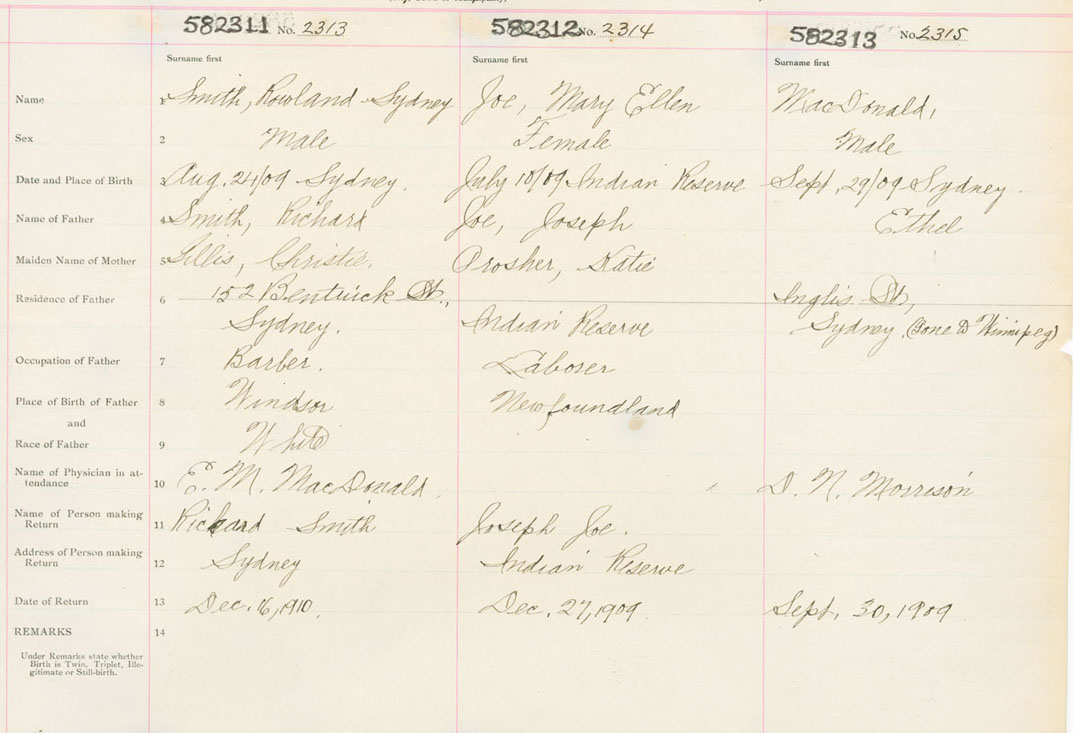 582311 No. 2313 582312 No. 2314 582313 No. 2315
Surname first Surname first Surname first
Name 1 Smith, Rowland - Sydney Joe, Mary Ellen MacDonald,
Sex 2 Male Female Male
Date and Place of Birth 3 Aug. 24/09 - Sydney. July 10/09 Indian Reserve Sept, 29/09 Sydney.
Name of Father 4 Smith, Richard Joe, Joseph Ethel
Maiden Name of Mother 5 Gillis, Christie. Prosher, Katie
Residence of Father 6 152 Bentinck St., Inglis St,
Sydney. Indian Reserve Sydney. (Gone to Winnipeg)
Occupation of Father 7 Barber. Laborer
Place of Birth of Father 8 Windsor Newfoundland
and
Race of Father 9 White
Name of Physician in at-
tendance 10 E. M. MacDonald. D. N. Morrison
Name of Person making
Return 11 Richard Smith Joseph Joe.
Address of Person making
Return 12 Sydney Indian Reserve
Date of Return 13 Dec. 16, 1910. Dec. 27, 1909. Sept. 30, 1909
REMARKS 14
Under Remarks state whether
Birth is Twin, Triplet, Ille-
gitimate or Still-birth.